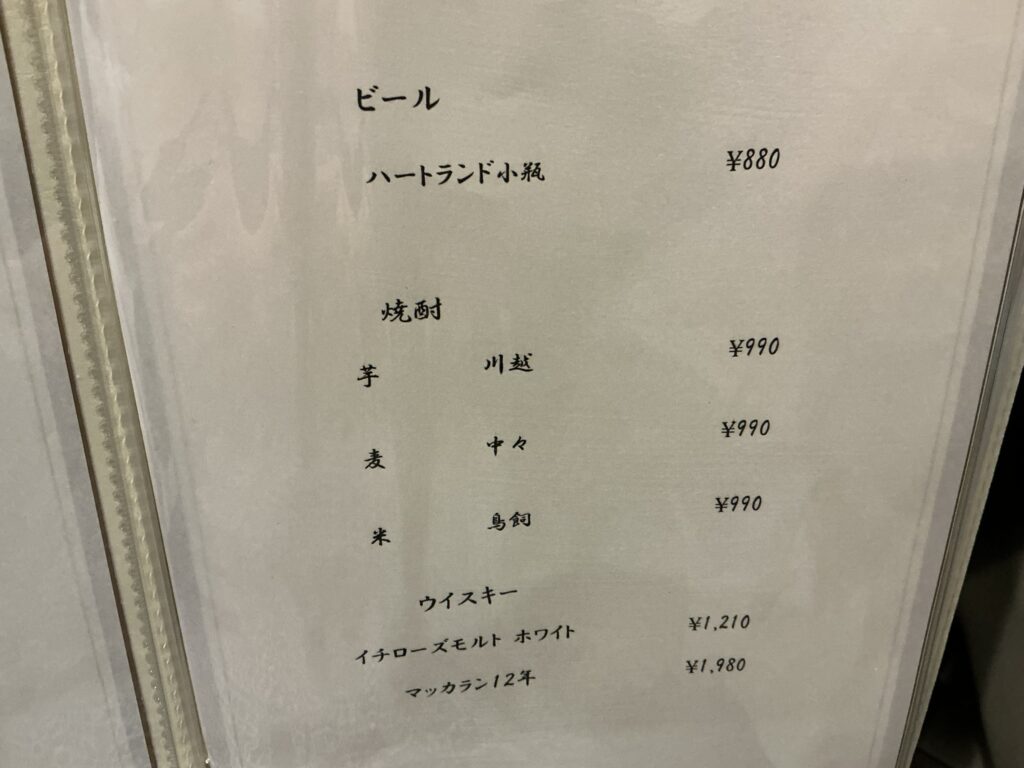 ビール
ハートランド小瓶 ¥880
焼酎
芋 川越 ¥990
麦 中々 ¥990
米 鳥飼 ¥990
ウイスキー
イチローズモルト ホワイト ¥1,210
マッカラン12年 ¥1,980